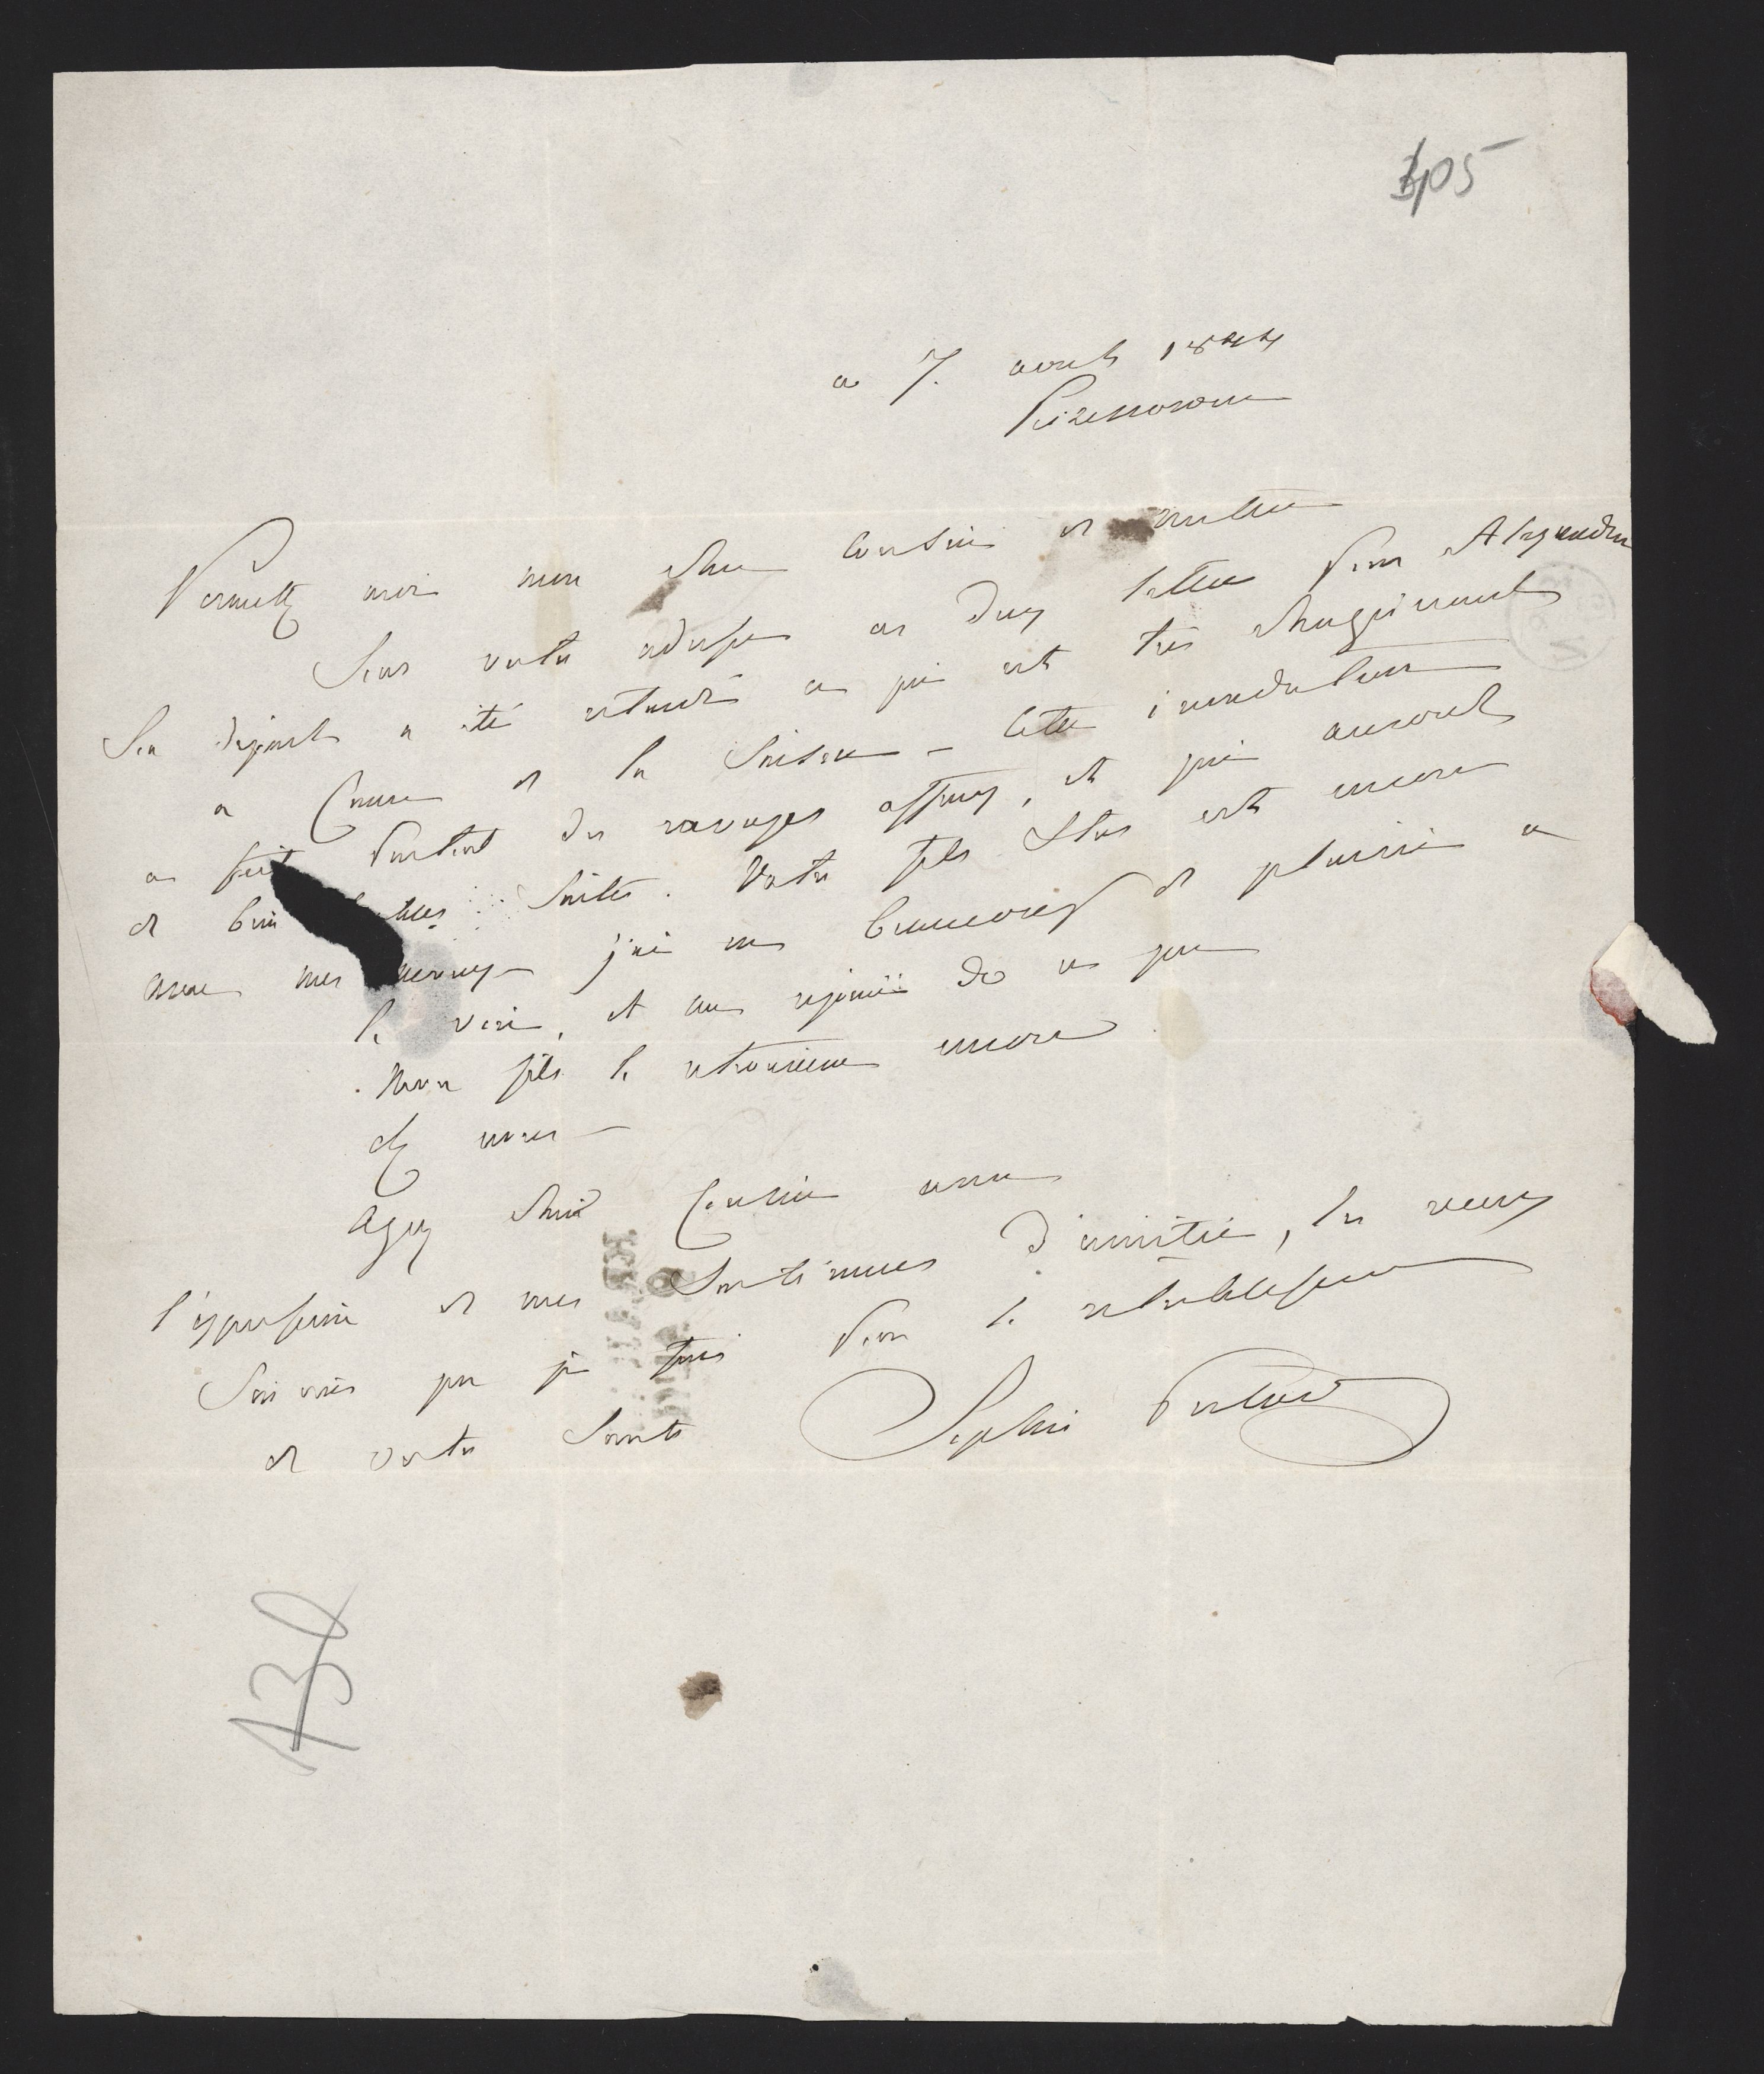 405
a 7. aout 1844
Permettz moi mon cher Cousin de mettre
sous votre adresse ces deux lettres pour Alexandre
Son depart a été retardé ce qui est très chagrinant
a Cause de la Saison – Cette inondation
a fait partout des ravages affreux, et qui auront
de bien suites. Votre fils est encore
avec mes j'ai eu beaucoup de plaisir a
le voir, et me rejouie de ce que
Mon fils le retrouvera encore
chez nous –
Agrez cher Cousin
l'expression de mes Sentimens d'amitié, les voeux
Sincères que je fais pour le retablissement
de votre Santé Sophie
130